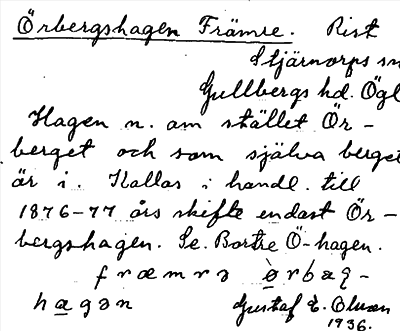 Örbergshagen Främre. Rist
Stjärnorps sn
Gullbergs hd. Ögl
Hagen n. om stället Ör-
berget och som själva berget
är i. Kallas i handl. till
1876-77 års skifte endast Ör-
bergshagen. Se. Bortre Ö-hagen.
fræmrə ørbæ̨-
hagən Gustaf E. Olsson
1936.